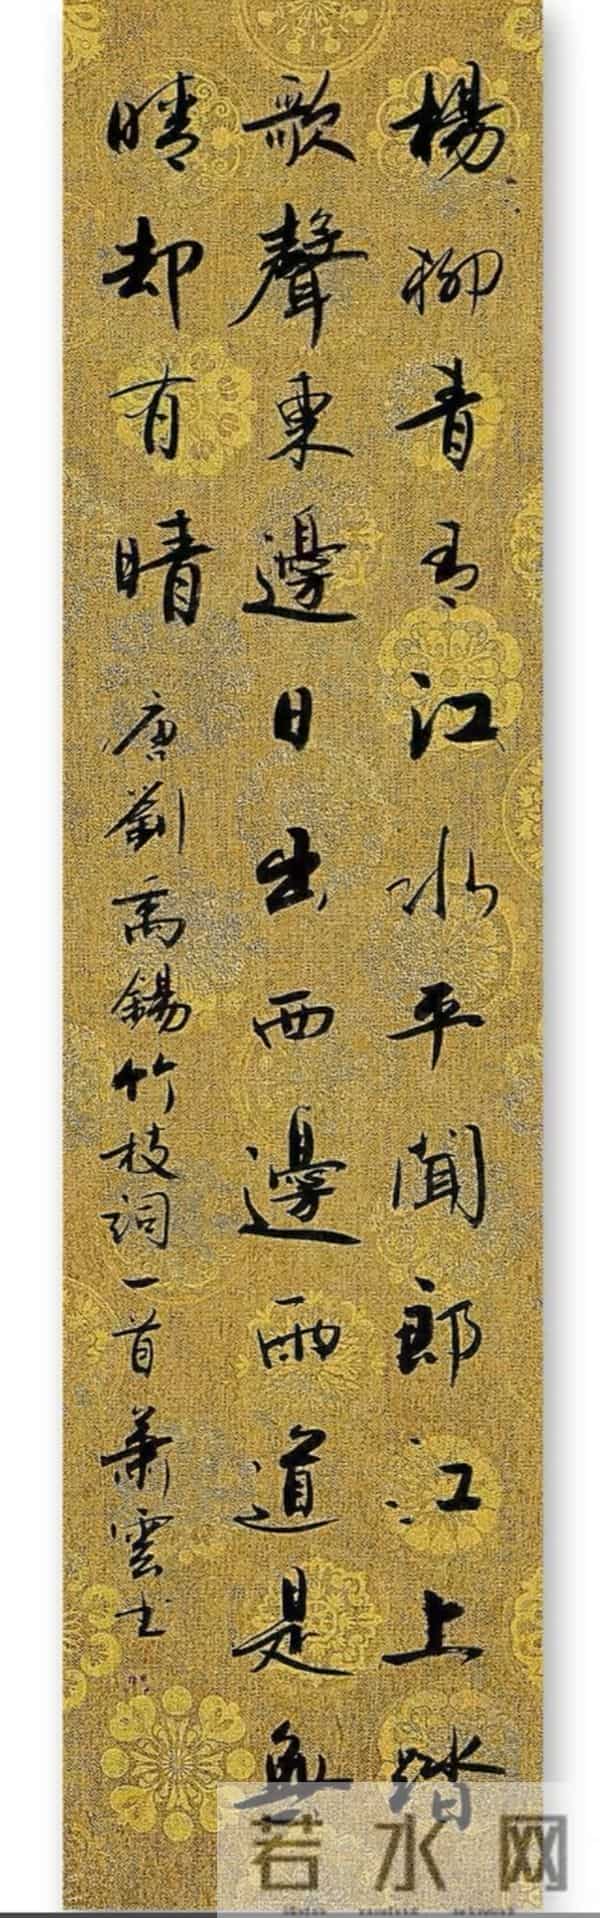 楊柳青青江水平聞郎江上踏
歌聲東邊日出西邊雨道是無
晴却有晴 唐劉禹錫竹枝詞一首 蕭雲书
若水网